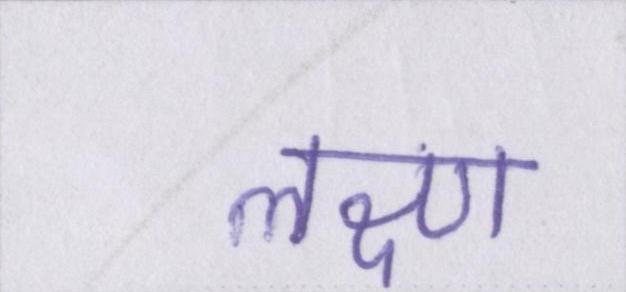 लक्षण